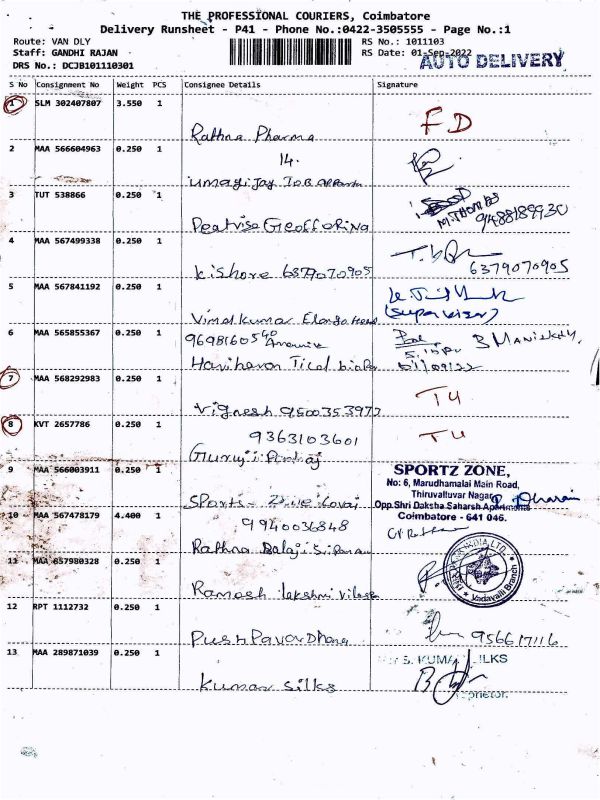 THE PROFESSIONAL COURIERS, Coimbatore
Delivery Runsheet - P41 - Phone No.:0422-3505555 - Page No.:1
Route: VAN DLY
Staff: GANDHI RAJAN
DRS No.: DCJB101110301
RS No.: 1011103
RS Date: 01-Sep-2022
AUTO DELIVERY
S No Consignment No Weight PCS Consignee Details Signature
1 SLM 302407807 3.550 1
Rathna Pharma FD
2 MAA 566604963 0.250 1
14.
3 TUT 538866 0.250 1
M.THOMAS
9488189930
4 MAA 567499338 0.250 1
Kishore 6379070905 6379070905
5 MAA 567841192 0.250 1
Vimal Kumar (Supervisor)
6 MAA 565855367 0.250 1
Hariharan
7 MAA 568292983 0.250 1
Vignesh 9500353977
8 KVT 2657786 0.250 1
9363103601
Guruji
9 MAA 566003911 0.250 1
SPORTZ ZONE,
No: 6, Marudhamalai Main Road,
Thiruvalluvar Nagar
Opp.Shri Daksha Saharsh Apartments
Coimbatore - 641 046.
10 MAA 567478179 4.400 1
9940036848
Rathna Balaji
11 MAA 857980328 0.250 1
Ramash lakshmi vilas
Vadavalli Branch
12 RPT 1112732 0.250 1
9566171116
13 MAA 289871039 0.250 1
Kumar Silks